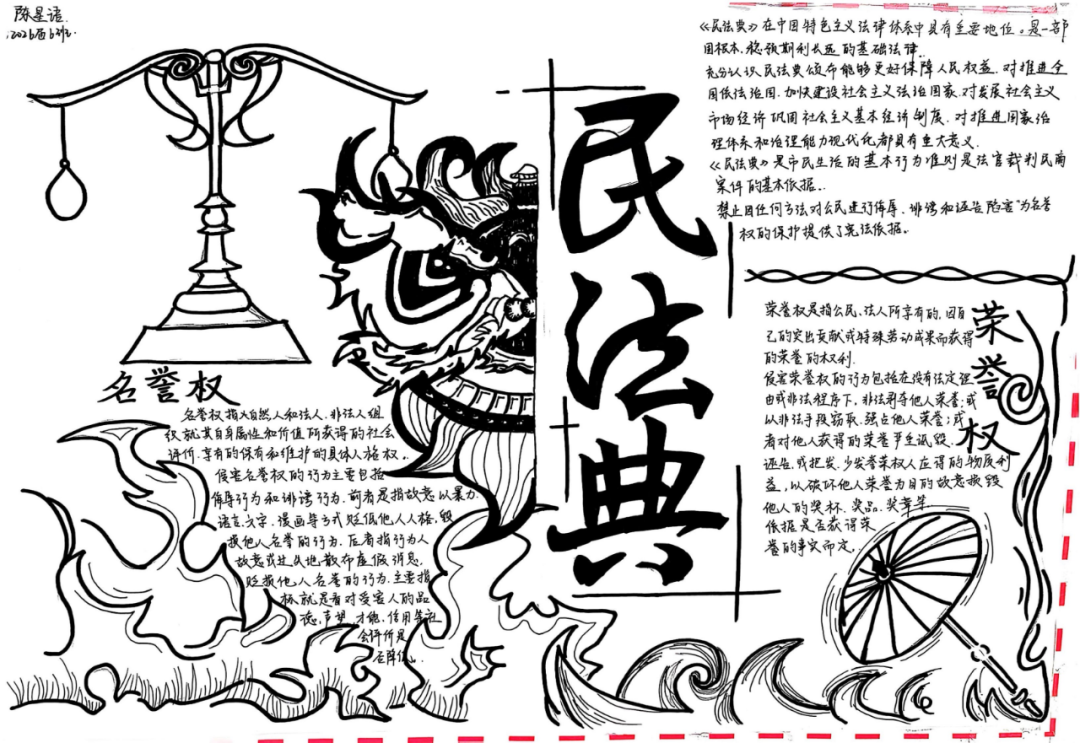 陈星语
2026届6班
民法典
《民法典》在中国特色主义法律体系中具有重要地位。是一部
固根本、稳预期利长远的基础法律.
充分认识民法典颁布能够更好保障人民权益.对推进全
国依法治国.加快建设社会主义法治国家.对发展社会主义
市场经济巩固社会主义基本经济制度.对推进国家治
理体系和治理能力现代化都具有重大意义.
《民法典》是市民生活的基本行为准则是法官裁判民商
案件的基本依据..
禁止用任何方法对公民进行侮辱、诽谤和诬告陷害"为名誉
权的保护提供了宪法依据。
名誉权
名誉权指大自然人和法人.非法人组
织就其自身属性和价值所获得的社会
评价.享有的保有和维护的具体人格权。
侵害名誉权的行为主要包括
侮辱行为和诽谤行为.前者是指故意以暴力.
语言.文字.漫画等方式贬低他人人格,毁
损他人名誉的行为.后者指行为人
故意或过失地散布虚假消息.
贬损他人名誉的行为.主要指
标就是看对受害人的品
德.声望.才能.信用等社
会评价是
否降低..
荣誉权
荣誉权是指公民.法人所享有的.因自
己的突出贡献或特殊劳动成果而获得
的荣誉的权利.
侵害荣誉权的行为包括在没有法定理
由或非法程序下,非法剥夺他人荣誉;或
以非法手段窃取、强占他人荣誉;或
者对他人获得的荣誉严重诋毁.
诬告.或把发.少发誉荣权人应得的物质利
益,以破坏他人荣誉为目的故意损毁
他人的奖杯、奖品、奖章等
依据是否获得荣
誉的事实而定.